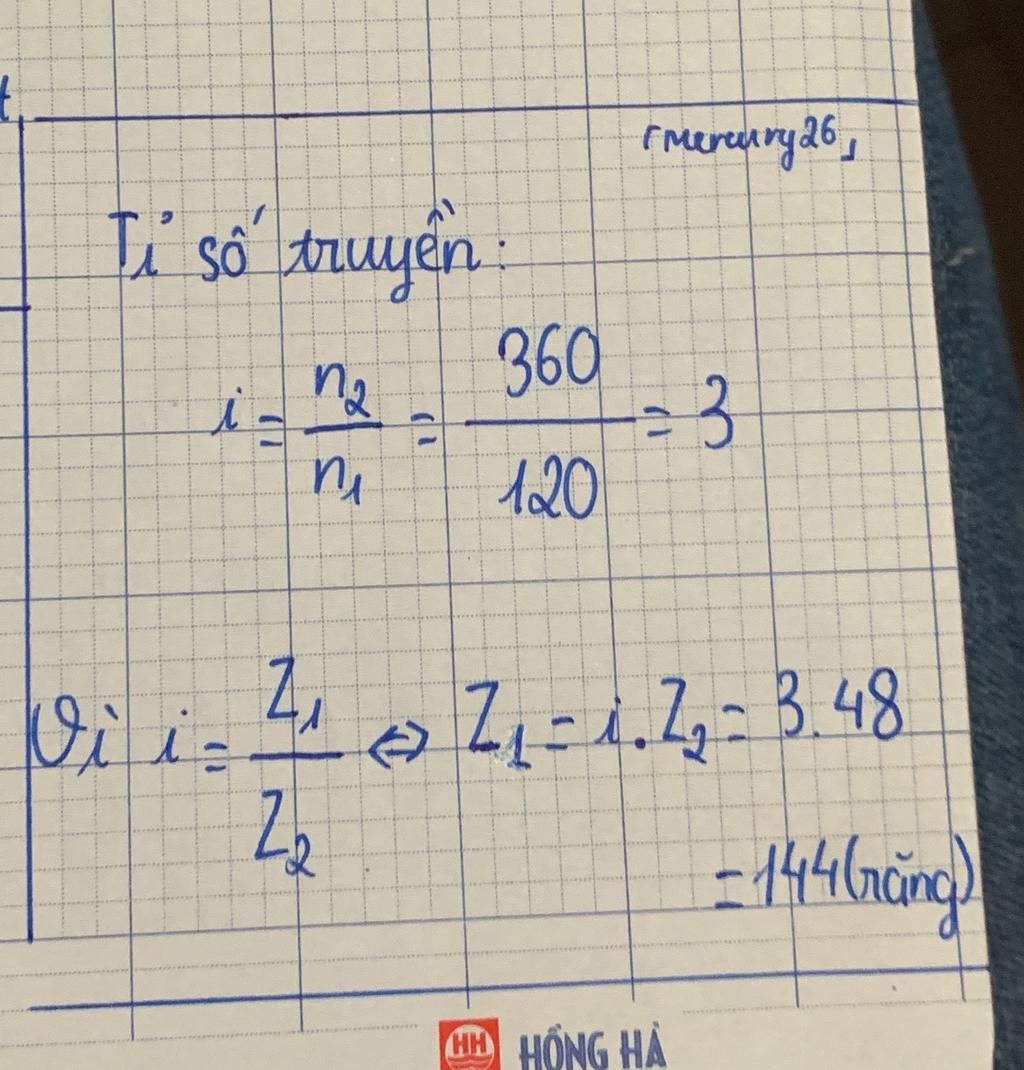 t
「Mercury26」
Tỉ số truyền:
i = n₂/n₁ = 360/120 = 3
Vì i = Z₁/Z₂ ⇔ Z₁ = i . Z₂ = 3.48
= 144 (răng)
HH HỒNG HÀ